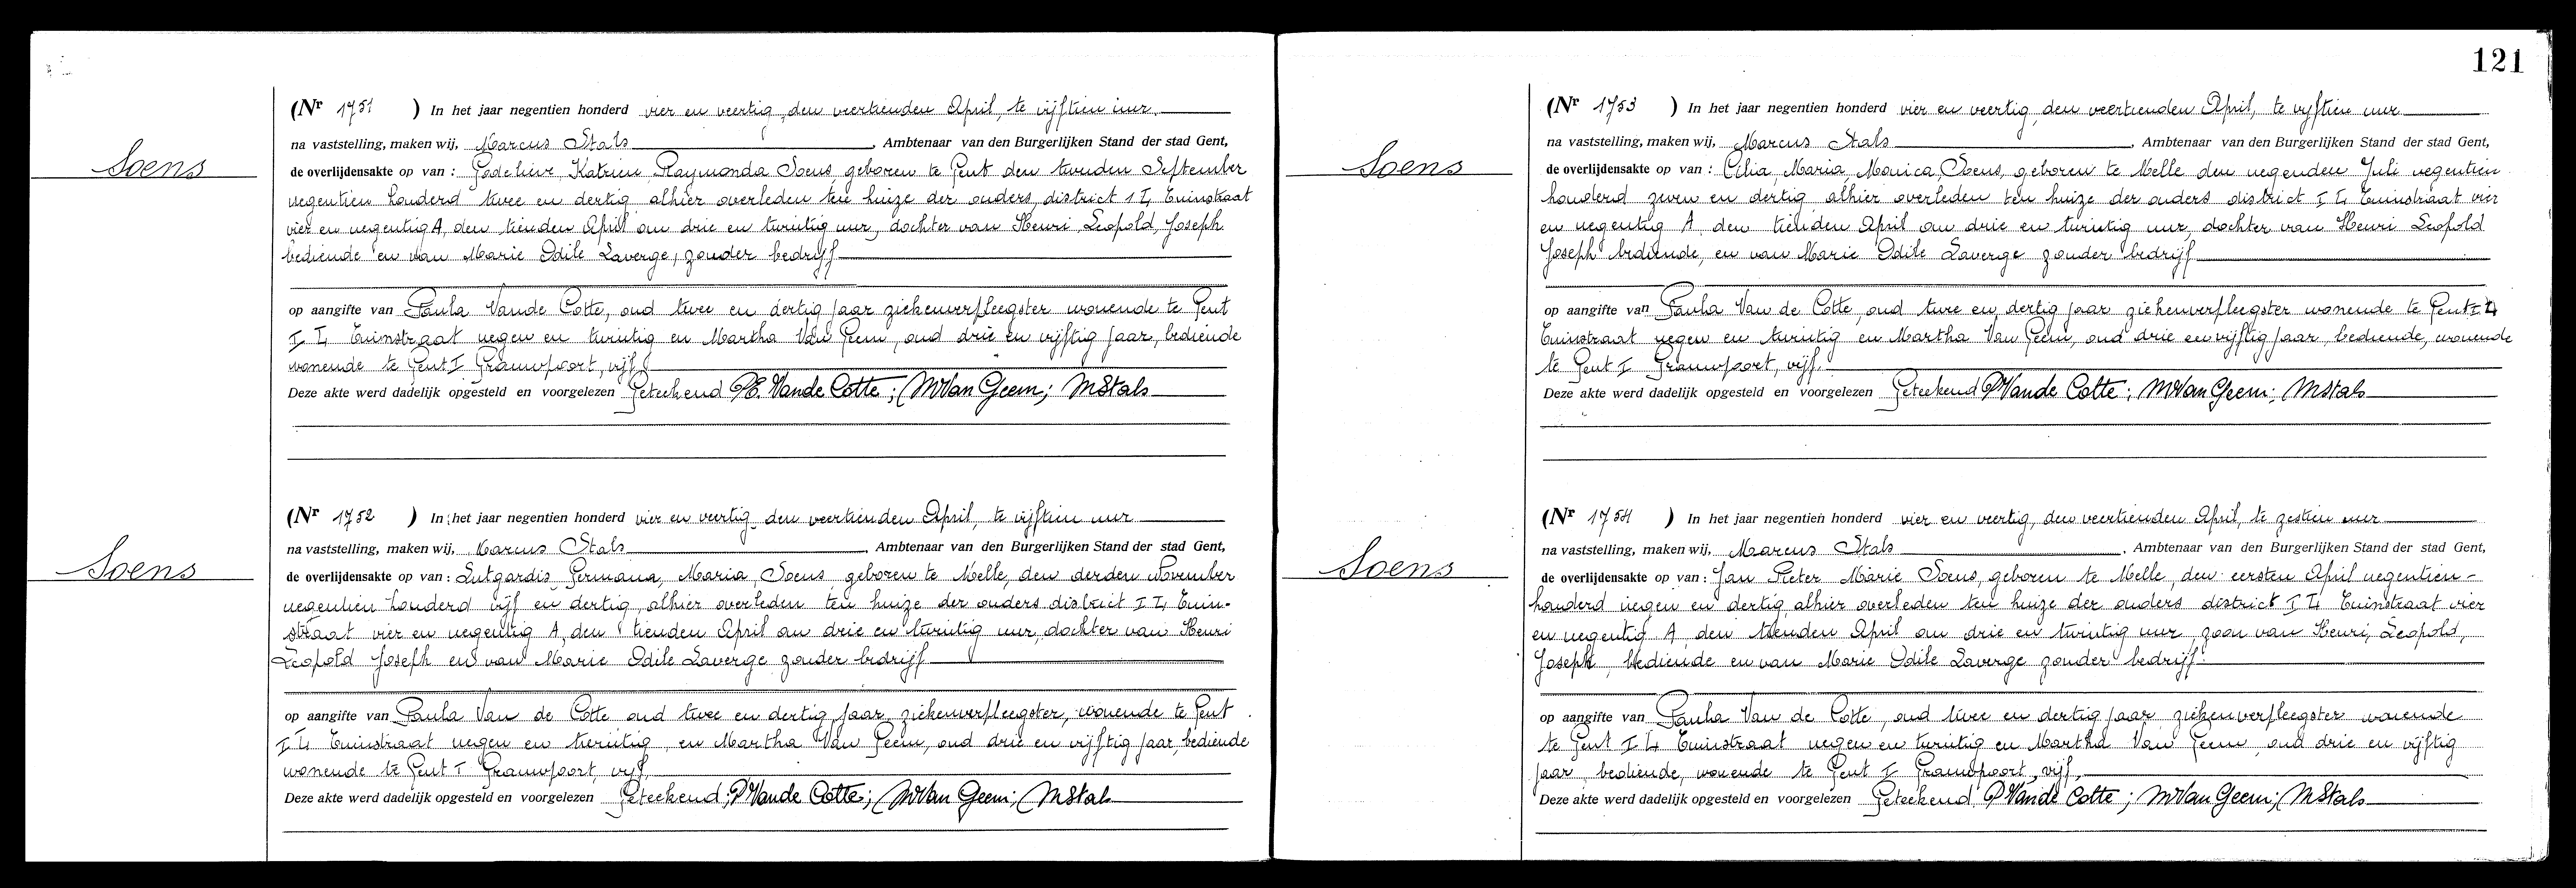 Soens
(Nr 1751 ) In het jaar negentien honderd vier en veertig, den veertienden April, te vijftien uur.
na vaststelling, maken wij, Marcus Stals, Ambtenaar van den Burgerlijken Stand der stad Gent,
de overlijdensakte op van : Godelieve Katrien Raymonda Soens geboren te Gent den tweeden September
negentien honderd twee en dertig alhier overleden ten huize der ouders, district I 4 Tuinstraat
vier en negentig A, den tienden April om drie en twintig uur, dochter van Henri, Leopold, Joseph
bediende en van Marie Odile Laverge, zonder bedrijf
op aangifte van Paula Vande Cotte, oud twee en dertig jaar ziekenverpleegster wonende te Gent
I 4 Tuinstraat negen en twintig en Martha Van Geem, oud drie en vijftig jaar, bediende
wonende te Gent I Grauwpoort, vijf.
Deze akte werd dadelijk opgesteld en voorgelezen Geteekend PE. Vande Cotte; MVan Geem; MStals
Soens
(Nr 1752 ) In het jaar negentien honderd vier en veertig den veertienden April, te vijftien uur
na vaststelling, maken wij, Marcus Stals, Ambtenaar van den Burgerlijken Stand der stad Gent,
de overlijdensakte op van : Lutgardis Germana, Maria, Soens geboren te Melle, den derden November
negentien honderd vijf en dertig, alhier overleden ten huize der ouders district I 4 Tuin-
straat vier en negentig A, den tienden April om drie en twintig uur, dochter van Henri
Leopold Joseph en van Marie Odile Laverge zonder bedrijf
op aangifte van Paula Van de Cotte oud twee en dertig jaar ziekenverpleegster, wonende te Gent
I 4 Tuinstraat negen en twintig, en Martha Van Geem, oud drie en vijftig jaar, bediende
wonende te Gent I Grauwpoort, vijf.
Deze akte werd dadelijk opgesteld en voorgelezen Geteekend; PVande Cotte; MVan Geem; MStals
121
Soens
(Nr 1753 ) In het jaar negentien honderd vier en veertig, den veertienden April, te vyftien uur
na vaststelling, maken wij, Marcus Stals, Ambtenaar van den Burgerlijken Stand der stad Gent,
de overlijdensakte op van : Cilia, Maria, Monica, Soens, geboren te Melle den negenden Juli negentien
honderd zeven en dertig alhier overleden ten huize der ouders district I 4 Tuinstraat vier
en negentig A, den tienden April om drie en twintig uur, dochter van Henri Leopold
Joseph bediende, en van Marie Odile Laverge zonder bedrijf
op aangifte van Paula Van de Cotte, oud twee en dertig jaar ziekenverpleegster wonende te Gent I 4
Tuinstraat negen en twintig en Martha Van Geem, oud drie en vijftig jaar, bediende, wonende
te Gent I Grauwpoort, vijf.
Deze akte werd dadelijk opgesteld en voorgelezen Geteekend PVande Cotte; MVan Geem; MStals
Soens
(Nr 1754 ) In het jaar negentien honderd vier en veertig, den veertienden April, te zestien uur
na vaststelling, maken wij, Marcus Stals, Ambtenaar van den Burgerlijken Stand der stad Gent,
de overlijdensakte op van : Jan Pieter Marie Soens, geboren te Melle, den eersten April negentien-
honderd negen en dertig, alhier overleden ten huize der ouders district I 4 Tuinstraat vier
en negentig A, den tienden April om drie en twintig uur, zoon van Henri, Leopold,
Joseph, bediende en van Marie Odile Laverge zonder bedrijf.
op aangifte van Paula Van de Cotte, oud twee en dertig jaar ziekenverpleegster wonende
te Gent I 4 Tuinstraat negen en twintig en Martha Van Geem, oud drie en vijftig
jaar, bediende, wonende te Gent I Grauwpoort, vijf.
Deze akte werd dadelijk opgesteld en voorgelezen Geteekend PVande Cotte; MVan Geem; MStals